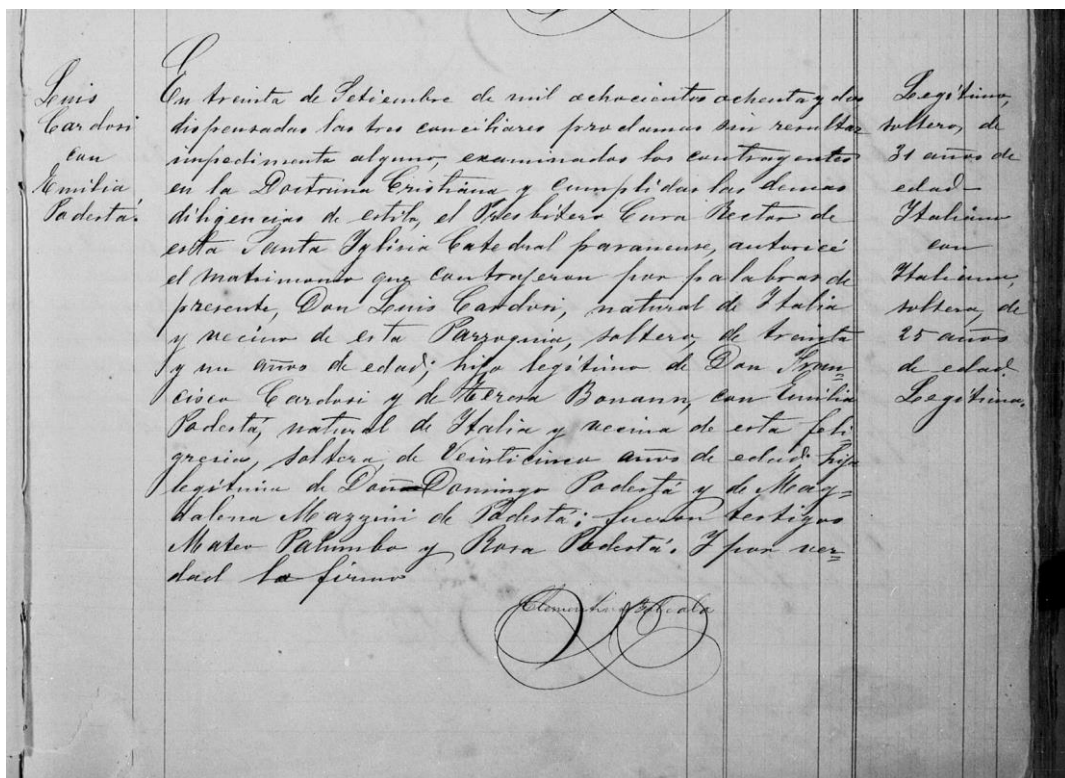 Luis
Cardosi
con
Emilia
Podestá.
En treinta de Setiembre de mil ochocientos ochenta y dos
dispensadas las tres conciliares proclamas sin resultar
impedimento alguno, examinados los contrayentes
en la Doctrina Cristiana y cumplidas las demas
diligencias de estilo, el Presbítero Cura Rector de
esta Santa Iglisia Catedral paranense, autoricé
el matrimonio que contrageron por palabras de
presente, Don Luis Cardosi, natural de Italia
y vecino de esta Parroquia, soltero, de treinta
y un años de edad; hijo legítimo de Don Fran=
cisco Cardosi y de Teresa Bonann, con Emilia
Podestá, natural de Italia y vecina de esta feli=
gresia, soltera, de Veinticinco años de edad, hija
legítima de Don Domingo Podestá y de Mag=
dalena Mazzini de Podestá; fueron testigos
Mateo Palumbo y Rosa Podestá. Y por ver=
dad lo firmo
Legítimo,
soltero, de
31 años de
edad
Italiano
con
Italiana,
soltera, de
25 años
de edad.
Legítima.